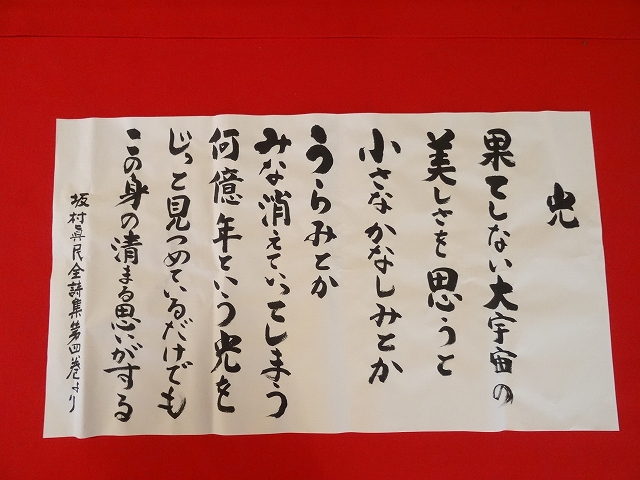 光
果てしない大宇宙の
美しさを思うと
小さなかなしみとか
うらみとか
みな消えていってしまう
何億年という光を
じっと見つめているだけでも
この身の清まる思いがする
坂村眞民全詩集第四巻より